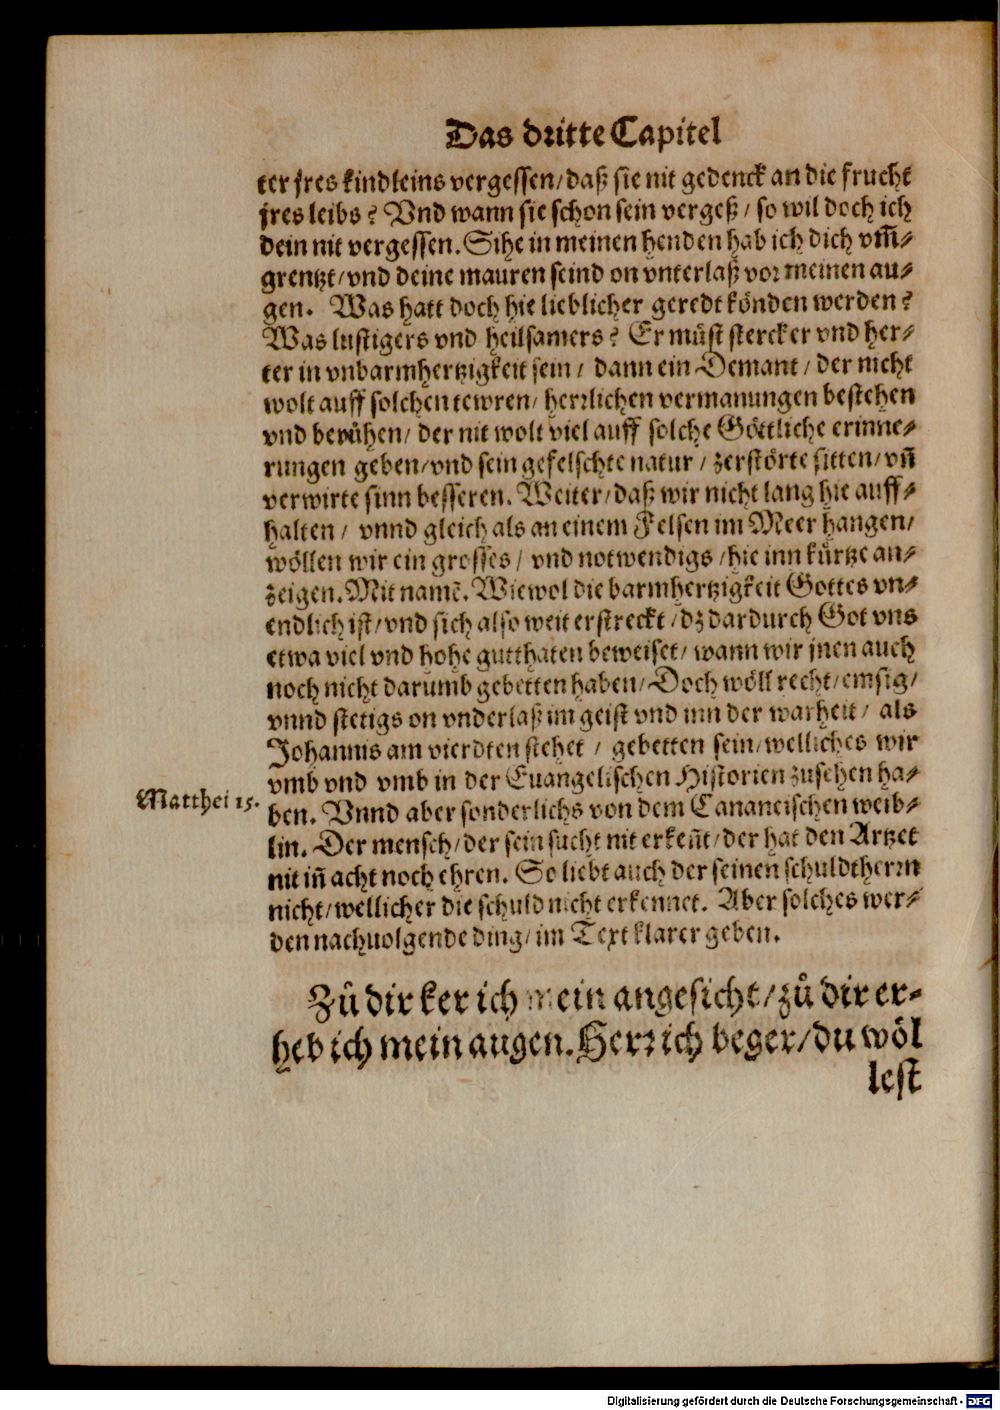 Das dritte Capitel
ter jres kindleins vergessen/daß sie nit gedenck an die frucht
jres leibs? Vnd wann sie schon sein vergeß/ so wil doch ich
dein nit vergessen. Sihe in meinen henden hab ich dich vm̃⸗
grentzt/vnd deine mauren seind on vnterlaß vor meinen au⸗
gen. Was hatt doch hie lieblicher geredt könden werden?
Was lustigers vnd heilsamers? Er můst stercker vnd her⸗
ter in vnbarmhertzigkeit sein/ dann ein Demant/ der nicht
wolt auff solchen tewren/ herrlichen vermanungen bestehen
vnd berůhen/ der nit wolt viel auff solche Göttliche erinne⸗
rungen geben/vnd sein gefelschte natur/ zerstörte sitten/vñ
verwirte sinn besseren. Weiter/daß wir nicht lang hie auff⸗
halten/ vnnd gleich als an einem Felsen im Meer hangen/
wöllen wir ein grosses/ vnd notwendigs/hie inn kürtze an⸗
zeigen. Mit namẽ. Wiewol die barmhertzigkeit Gottes vn⸗
endlich ist/vnd sich also weit erstreckt/dz dardurch Got vns
etwa viel vnd hohe gutthaten beweiset/wann wir jnen auch
noch nicht darumb gebetten haben/Doch wöll recht/emsig/
vnnd stetigs on vnderlaß im geist vnd inn der warheit/ als
Johannis am vierdten stehet/ gebetten sein/welliches wir
vmb vnd vmb in der Euangelischen Historien zusehen ha⸗
Matthei 15.
ben. Vnnd aber sonderlichs von dem Cananeischen weib⸗
lin. Der mensch/der sein sucht nit erkeñt/der hat den Artzet
nit iñ acht noch ehren. So liebt auch der seinen schuldtherrn
nicht/wellicher die schuld nicht erkennet. Aber solches wer⸗
den nachuolgende ding/im Text klarer geben.
Zů dir ker ich mein angesicht/zů dir er⸗
heb ich mein augen. Herr ich beger/du wöl
lest
Digitalisierung gefördert durch die Deutsche Forschungsgemeinschaft - DFG